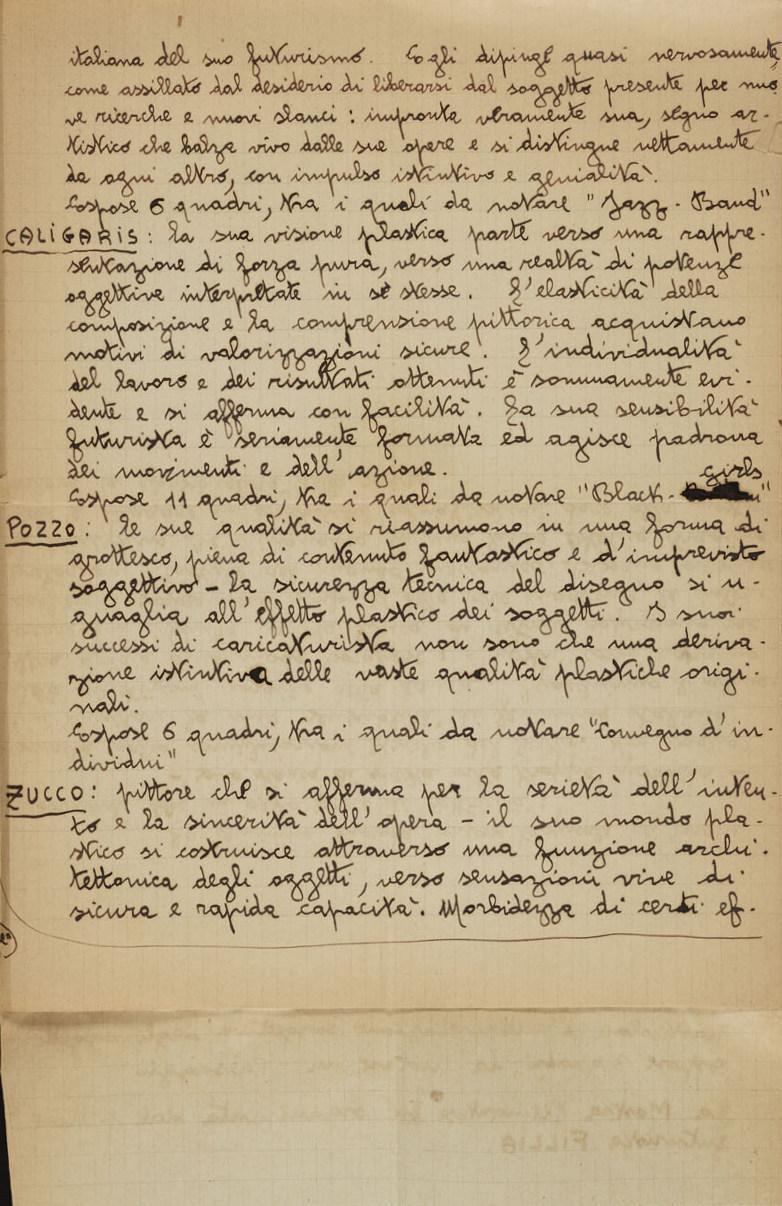 italiana del suo futurismo. Egli dipinge quasi nervosamente,
come assillato dal desiderio di liberarsi dal soggetto presente per nuo-
ve ricerche e nuovi slanci: impronta veramente sua, segno ar-
tistico che balza vivo dalle sue opere e si distingue nettamente
da ogni altro, con impulso istintivo e genialità.
Espose 6 quadri, tra i quali da notare "Jazz-Band"
CALIGARIS: la sua visione plastica parte verso una rappre-
sentazione di forza pura, verso una realtà di potenze
oggettive interpretate in sé stesse. L'elasticità della
composizione e la comprensione pittorica acquistano
motivi di valorizzazioni sicure. L'individualità
del lavoro e dei risultati ottenuti è sommamente evi-
dente e si afferma con facilità. La sua sensibilità
futurista è seriamente formata ed agisce padrona
dei movimenti e dell'azione.
Espose 11 quadri, tra i quali da notare "Black-girls"
POZZO: le sue qualità si riassumono in una forma di
grottesco, piena di contenuto fantastico e d'imprevisto
soggettivo - la sicurezza tecnica del disegno si u-
guaglia all'effetto plastico dei soggetti. I suoi
successi di caricaturista non sono che una deriva-
zione istintiva delle vaste qualità plastiche origi-
nali.
Espose 6 quadri, tra i quali da notare "Convegno d'in-
dividui"
ZUCCO: pittore che si afferma per la serietà dell'inten-
to e la sincerità dell'opera - il suo mondo pla-
stico si costruisce attraverso una funzione archi-
tettonica degli oggetti, verso sensazioni vive di
sicura e rapida capacità. Morbidezza di certi ef-